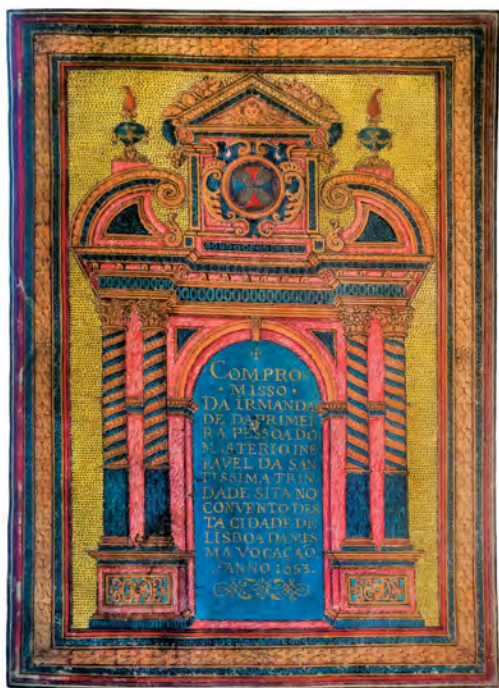 COMPRO-
· MISSO ·
DA IRMANDA
DE DAPRIMEI
RA PESSOA DO
MISTERIO INE
FAVEL DA SAN
TISSIMA TRIN
DADE SITA NO
CONVENTO DES
TA CIDADE DE
LISBOA DA MES
MA VOCAÇÃO
· ANNO. 1653 ·